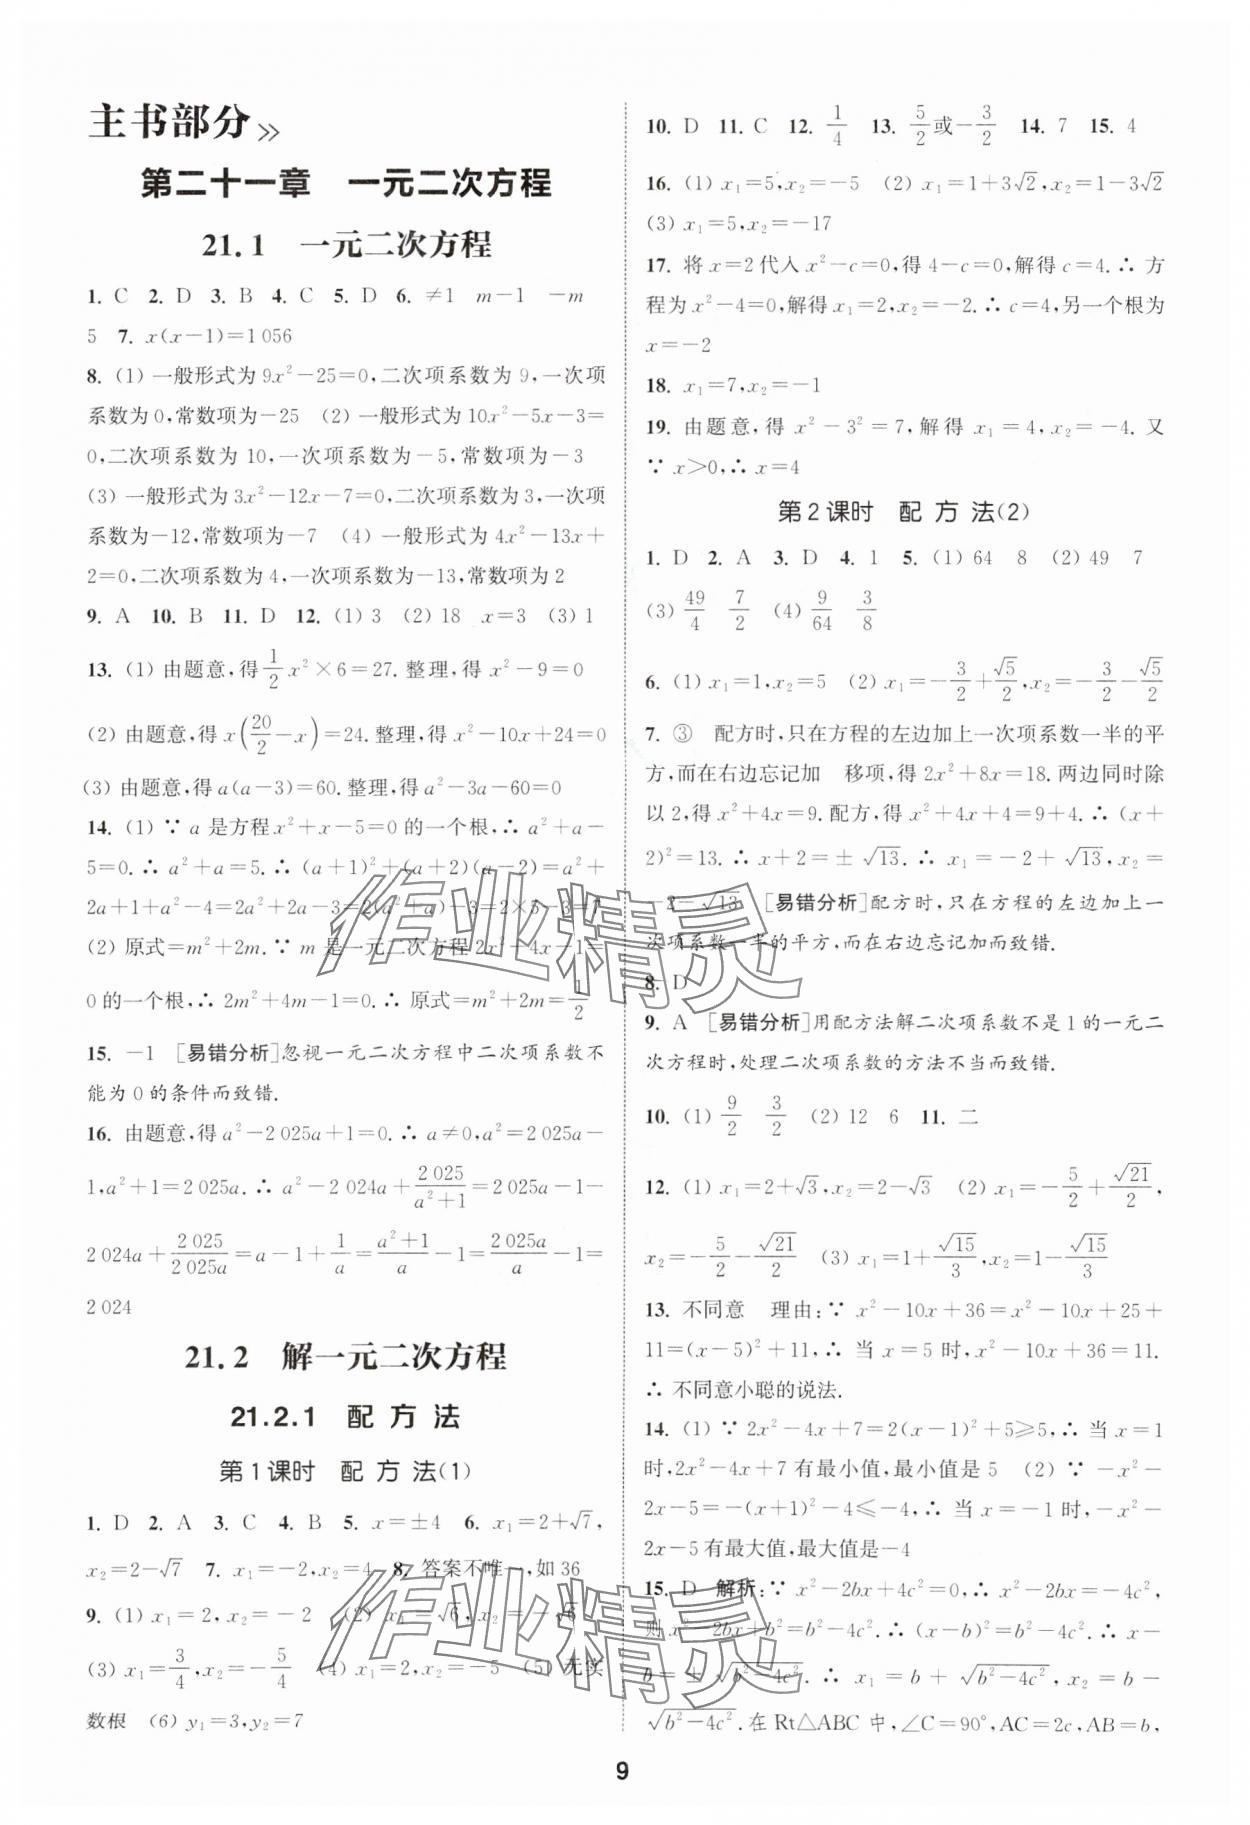 主书部分>>
第二十一章　一元二次方程
21.1　一元二次方程
1. C　2. D　3. B　4. C　5. D　6. ≠1　m－1　－m
5　7. x(x－1)＝1 056
8. (1) 一般形式为 9x²－25＝0,二次项系数为 9,一次项
系数为 0,常数项为－25　(2) 一般形式为 10x²－5x－3＝
0,二次项系数为 10,一次项系数为－5,常数项为－3
(3) 一般形式为 3x²－12x－7＝0,二次项系数为 3,一次项
系数为－12,常数项为－7　(4) 一般形式为 4x²－13x＋
2＝0,二次项系数为 4,一次项系数为－13,常数项为 2
9. A　10. B　11. D　12. (1) 3　(2) 18　x＝3　(3) 1
13. (1) 由题意,得 1/2 x²×6＝27. 整理,得 x²－9＝0
(2) 由题意,得 x(20/2－x)＝24. 整理,得 x²－10x＋24＝0
(3) 由题意,得 a(a－3)＝60. 整理,得 a²－3a－60＝0
14. (1) ∵ a 是方程 x²＋x－5＝0 的一个根,∴ a²＋a－
5＝0. ∴ a²＋a＝5. ∴ (a＋1)²＋(a＋2)(a－2)＝a²＋
2a＋1＋a²－4＝2a²＋2a－3＝2(a²＋a)－3＝2×5－3＝7
(2) 原式＝m²＋2m. ∵ m 是一元二次方程 2x²＋4x－1＝
0 的一个根,∴ 2m²＋4m－1＝0. ∴ 原式＝m²＋2m＝1/2
15. －1　[易错分析]忽视一元二次方程中二次项系数不
能为 0 的条件而致错.
16. 由题意,得 a²－2 025a＋1＝0. ∴ a≠0,a²＝2 025a－
1,a²＋1＝2 025a. ∴ a²－2 024a＋2 025/(a²＋1)＝2 025a－1－
2 024a＋2 025/2 025a＝a－1＋1/a＝(a²＋1)/a－1＝2 025a/a－1＝
2 024
21.2　解一元二次方程
21.2.1　配 方 法
第 1 课时　配 方 法(1)
1. D　2. A　3. C　4. B　5. x＝±4　6. x₁＝2＋√7,
x₂＝2－√7　7. x₁＝－2,x₂＝4　8. 答案不唯一,如 36
9. (1) x₁＝2,x₂＝－2　(2) x₁＝√6,x₂＝－√6
(3) x₁＝3/4,x₂＝－5/4　(4) x₁＝2,x₂＝－5　(5) 无实
数根　(6) y₁＝3,y₂＝7
10. D　11. C　12. 1/4　13. 5/2或－3/2　14. 7　15. 4
16. (1) x₁＝5,x₂＝－5　(2) x₁＝1＋3√2,x₂＝1－3√2
(3) x₁＝5,x₂＝－17
17. 将 x＝2 代入 x²－c＝0,得 4－c＝0,解得 c＝4. ∴ 方
程为 x²－4＝0,解得 x₁＝2,x₂＝－2. ∴ c＝4,另一个根为
x＝－2
18. x₁＝7,x₂＝－1
19. 由题意,得 x²－3²＝7,解得 x₁＝4,x₂＝－4. 又
∵ x＞0,∴ x＝4
第 2 课时　配 方 法(2)
1. D　2. A　3. D　4. 1　5. (1) 64　8　(2) 49　7
(3) 49/4　7/2　(4) 9/64　3/8
6. (1) x₁＝1,x₂＝5　(2) x₁＝－3/2＋√5/2,x₂＝－3/2－√5/2
7. ③　配方时,只在方程的左边加上一次项系数一半的平
方,而在右边忘记加　移项,得 2x²＋8x＝18. 两边同时除
以 2,得 x²＋4x＝9. 配方,得 x²＋4x＋4＝9＋4. ∴ (x＋
2)²＝13. ∴ x＋2＝±√13. ∴ x₁＝－2＋√13,x₂＝
－2－√13　[易错分析]配方时,只在方程的左边加上一
次项系数一半的平方,而在右边忘记加而致错.
8. D
9. A　[易错分析]用配方法解二次项系数不是 1 的一元二
次方程时,处理二次项系数的方法不当而致错.
10. (1) 9/2　3/2　(2) 12　6　11. 二
12. (1) x₁＝2＋√3,x₂＝2－√3　(2) x₁＝－5/2＋√21/2,
x₂＝－5/2－√21/2　(3) x₁＝1＋√15/3,x₂＝1－√15/3
13. 不同意　理由:∵ x²－10x＋36＝x²－10x＋25＋
11＝(x－5)²＋11,∴ 当 x＝5 时,x²－10x＋36＝11.
∴ 不同意小聪的说法.
14. (1) ∵ 2x²－4x＋7＝2(x－1)²＋5≥5,∴ 当 x＝1
时,2x²－4x＋7 有最小值,最小值是 5　(2) ∵ －x²－
2x－5＝－(x＋1)²－4≤－4,∴ 当 x＝－1 时,－x²－
2x－5 有最大值,最大值是－4
15. D　解析:∵ x²－2bx＋4c²＝0,∴ x²－2bx＝－4c²,
则 x²－2bx＋b²＝b²－4c². ∴ (x－b)²＝b²－4c². ∴ x－
b＝±√(b²－4c²). ∴ x₁＝b＋√(b²－4c²),x₂＝b－
√(b²－4c²). 在 Rt△ABC 中,∠C＝90°,AC＝2c,AB＝b,
作业精灵
作业精灵
9